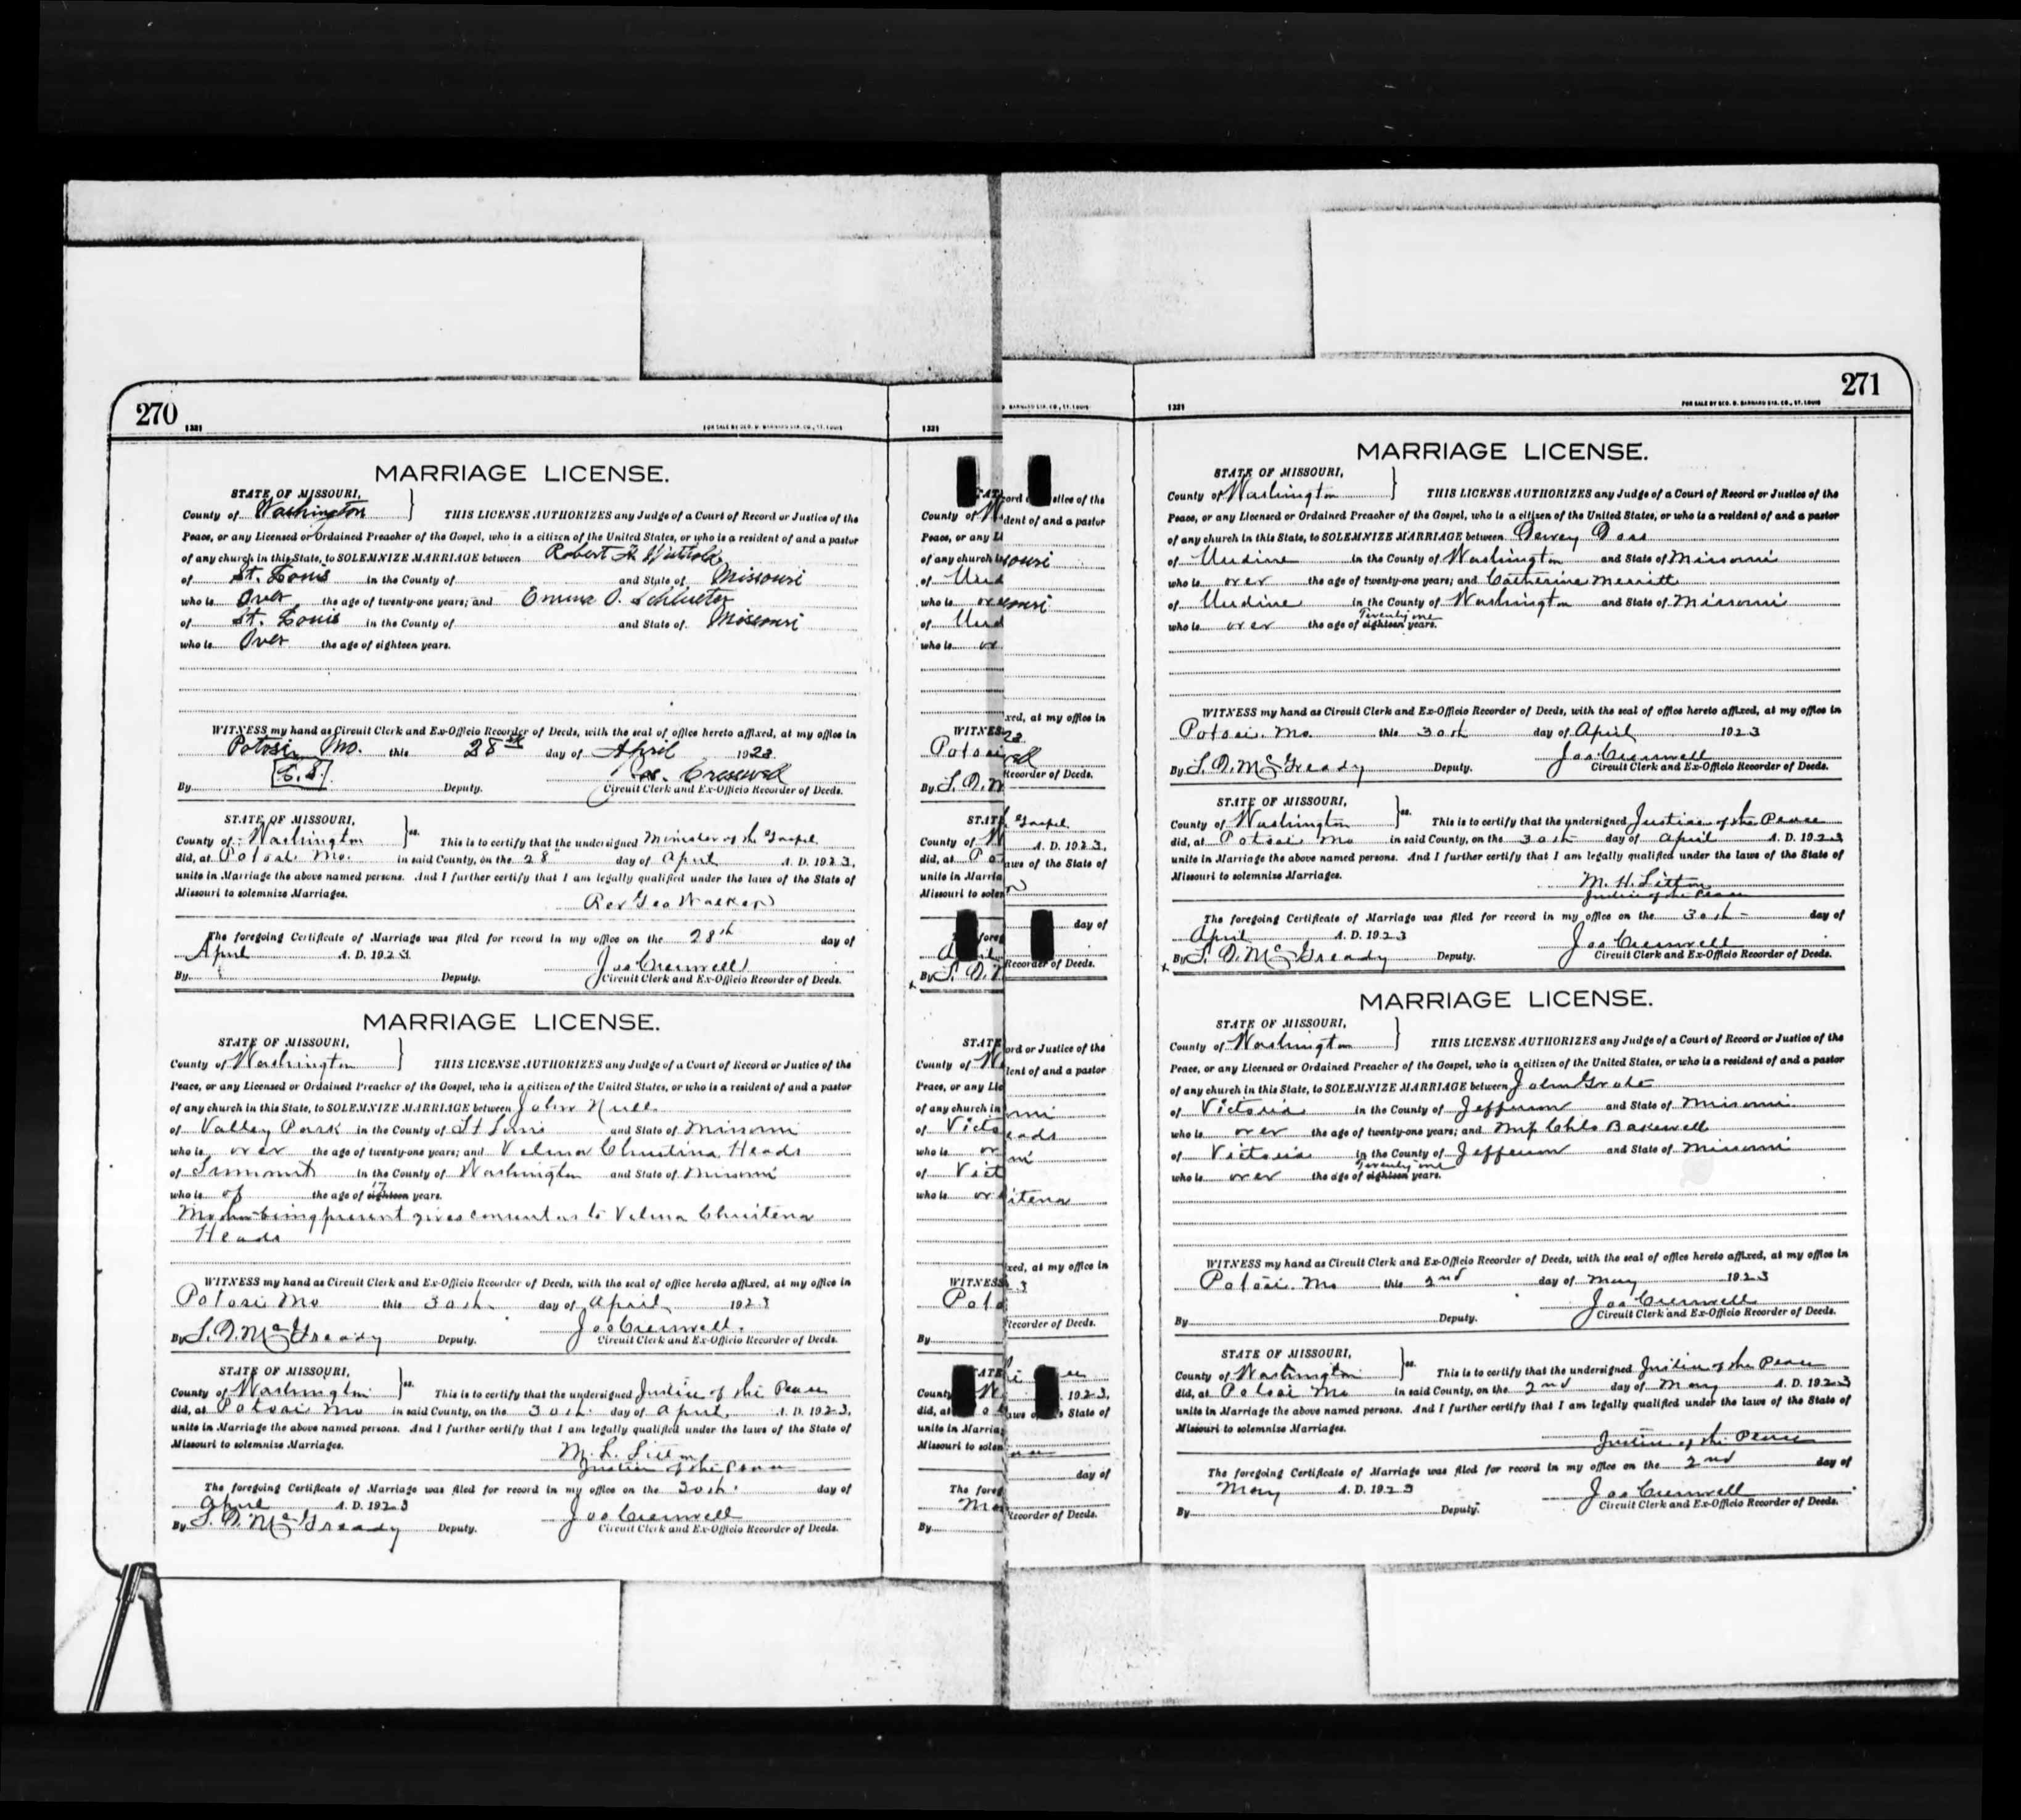 270
1321
FOR SALE BY GEO. D. BARNARD STA. CO., ST. LOUIS
MARRIAGE LICENSE.
STATE OF MISSOURI,
County of Washington } THIS LICENSE AUTHORIZES any Judge of a Court of Record or Justice of the
Peace, or any Licensed or Ordained Preacher of the Gospel, who is a citizen of the United States, or who is a resident of and a pastor
of any church in this State, to SOLEMNIZE MARRIAGE between Robert
of St. Louis in the County of and State of Missouri
who is Over the age of twenty-one years; and Emma O. Schlueter
of St. Louis in the County of and State of Missouri
who is Over the age of eighteen years.
WITNESS my hand as Circuit Clerk and Ex-Officio Recorder of Deeds, with the seal of office hereto affixed, at my office in
Potosi, Mo. this 28th day of April 1923.
L.S. Jas. Cresswell
By Deputy. Circuit Clerk and Ex-Officio Recorder of Deeds.
STATE OF MISSOURI,
County of Washington } ss. This is to certify that the undersigned Minister of the Gospel
did, at Potosi Mo. in said County, on the 28 day of April A. D. 1923,
unite in Marriage the above named persons. And I further certify that I am legally qualified under the laws of the State of
Missouri to solemnize Marriages.
Rev Geo Walker
The foregoing Certificate of Marriage was filed for record in my office on the 28th day of
April A. D. 1923
Jas Cresswell
By Deputy. Circuit Clerk and Ex-Officio Recorder of Deeds.
MARRIAGE LICENSE.
STATE OF MISSOURI,
County of Washington } THIS LICENSE AUTHORIZES any Judge of a Court of Record or Justice of the
Peace, or any Licensed or Ordained Preacher of the Gospel, who is a citizen of the United States, or who is a resident of and a pastor
of any church in this State, to SOLEMNIZE MARRIAGE between John Null
of Valley Park in the County of St Louis and State of Missouri
who is over the age of twenty-one years; and Velma Christina Heads
of Irmount in the County of Washington and State of Missouri
17
who is of the age of eighteen years.
Mother being present gives consent as to Velma Christena
Heads
WITNESS my hand as Circuit Clerk and Ex-Officio Recorder of Deeds, with the seal of office hereto affixed, at my office in
Potosi Mo this 30th day of April 1923
Jas Cresswell.
By S. D. McGready Deputy. Circuit Clerk and Ex-Officio Recorder of Deeds.
STATE OF MISSOURI,
County of Washington } ss. This is to certify that the undersigned Justice of the Peace
did, at Potosi Mo in said County, on the 30th day of April A. D. 1923,
unite in Marriage the above named persons. And I further certify that I am legally qualified under the laws of the State of
Missouri to solemnize Marriages.
Litton
Justice of the Peace
The foregoing Certificate of Marriage was filed for record in my office on the 30th day of
April A. D. 1923
Jas Cresswell
By S. D. McGready Deputy. Circuit Clerk and Ex-Officio Recorder of Deeds.
271
1321
FOR SALE BY GEO. D. BARNARD STA. CO., ST. LOUIS
MARRIAGE LICENSE.
STATE OF MISSOURI,
County of Washington } THIS LICENSE AUTHORIZES any Judge of a Court of Record or Justice of the
Peace, or any Licensed or Ordained Preacher of the Gospel, who is a citizen of the United States, or who is a resident of and a pastor
of any church in this State, to SOLEMNIZE MARRIAGE between Dewey Doss
of Undine in the County of Washington and State of Missouri
who is over the age of twenty-one years; and Catherine Merritt
of Undine in the County of Washington and State of Missouri
Twenty one
who is over the age of eighteen years.
WITNESS my hand as Circuit Clerk and Ex-Officio Recorder of Deeds, with the seal of office hereto affixed, at my office in
Potosi. Mo this 30th day of April 1923
Jas Cresswell
By S. D. McGready Deputy. Circuit Clerk and Ex-Officio Recorder of Deeds.
STATE OF MISSOURI,
County of Washington } ss. This is to certify that the undersigned Justice of the Peace
did, at Potosi Mo in said County, on the 30th day of April A. D. 1923
unite in Marriage the above named persons. And I further certify that I am legally qualified under the laws of the State of
Missouri to solemnize Marriages.
M. H. Litton
Justice of the Peace
The foregoing Certificate of Marriage was filed for record in my office on the 30th day of
April A. D. 1923
Jas Cresswell
By S. D. McGready Deputy. Circuit Clerk and Ex-Officio Recorder of Deeds.
MARRIAGE LICENSE.
STATE OF MISSOURI,
County of Washington } THIS LICENSE AUTHORIZES any Judge of a Court of Record or Justice of the
Peace, or any Licensed or Ordained Preacher of the Gospel, who is a citizen of the United States, or who is a resident of and a pastor
of any church in this State, to SOLEMNIZE MARRIAGE between John Grote
of Victoria in the County of Jefferson and State of Missouri
who is over the age of twenty-one years; and Bakewell
of Victoria in the County of Jefferson and State of Missouri
Twenty one
who is over the age of eighteen years.
WITNESS my hand as Circuit Clerk and Ex-Officio Recorder of Deeds, with the seal of office hereto affixed, at my office in
Potosi. Mo this 2nd day of May 1923
Jas Cresswell
By Deputy. Circuit Clerk and Ex-Officio Recorder of Deeds.
STATE OF MISSOURI,
County of Washington } ss. This is to certify that the undersigned Justice of the Peace
did, at Potosi Mo in said County, on the 2nd day of May A. D. 1923
unite in Marriage the above named persons. And I further certify that I am legally qualified under the laws of the State of
Missouri to solemnize Marriages.
Justice of the Peace
The foregoing Certificate of Marriage was filed for record in my office on the 2nd day of
May A. D. 1923
Jas Cresswell
By Deputy. Circuit Clerk and Ex-Officio Recorder of Deeds.